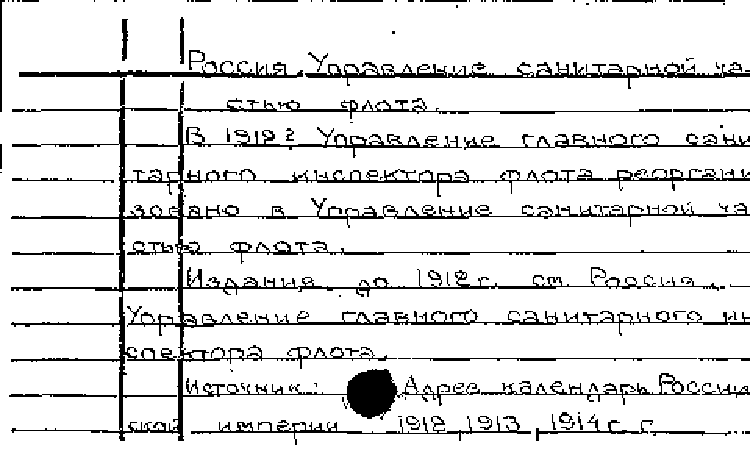 Россия. Управление санитарной ча
стью флота.
В 1912 г Управление главного сани
тарного инспектора флота реоргани
зовано в Управление санитарной ча
стью флота.
Издания до 1912 г. см. Россия.
Управление главного санитарного ин
спектора флота.
Источник: Адрес календарь Россий
ской империи 1912, 1913, 1914 г. г.